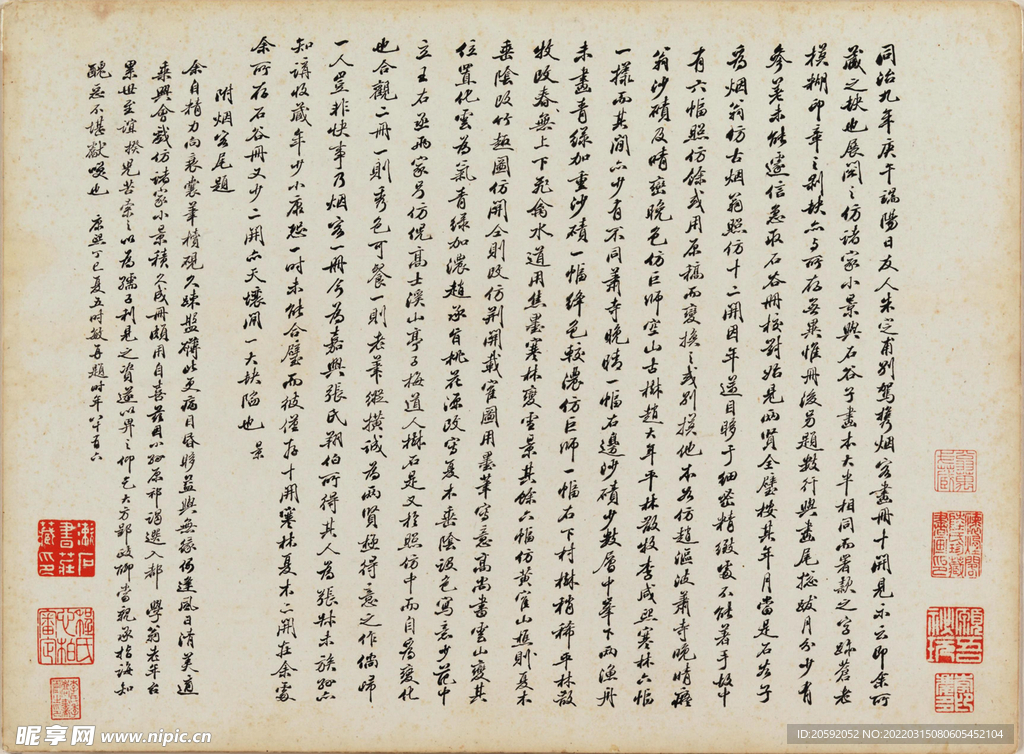 同治九年庚午端陽日友人朱定甫別駕攜烟客畫冊十開見示云即余所
藏之缺也展閱之仿諸家小景與石谷子畫本大半相同而署款之字跡蒼老
模糊印章之剝缺亦与所存無異惟冊後另題數行與畫尾摠紱月分少有
參差未能遽信急取石谷冊校對始見兩賢全璧按其年月當是石谷子
為烟翁仿古烟翁照仿十二開因年邁目眵于細密精緻處不能著手故中
有六幅照仿餘或用原稿而變換之或別摸他本如仿趙漚波蕭寺晚晴癡
翁沙磧及晴巒晚色仿巨師空山古樹趙大年平林散牧李咸熙寒林六幅
一樣而其間亦少有不同蕭寺晚晴一幅石邊沙磧少數層中筆下兩漁舟
未畫青綠加重沙磧一幅絳色較濃仿巨師一幅右下村樹稍稀平林散
牧改春無上下飛禽水道用焦墨寒林變雪景其餘六幅仿黃崔山樵則夏木
垂陰改竹趣圖仿關仝則改仿荆關載崔圖用墨筆寫意高尚書雲山變其
位置化雲為氣青綠加濃趙承旨桃花源改寫夏木垂陰設色寫意少范中
立王右丞兩家另仿倪高士溪山亭子梅道人樹石是又於照仿中而自為變化
也合觀二冊一則秀色可餐一則老筆縱橫誠為兩賢極得意之作倘歸
一人豈非快事乃烟客一冊今為嘉興張氏翔伯所得其人為張叔未族孫亦
知講收藏年少小康恐一時未能合璧而彼僅存十開寒林夏木二開在余處
余所存石谷冊又少二開亦天壤間一大缺陷也 景
附烟客尾題
余自精力向衰囊筆櫝硯久疎盤礴此更病目昏眵益與無緣何逢風日清美適
乘興會戲仿諸家小景積久成冊頗用自喜茲因小孫原祁謁選入都 學翁老年台
累世至誼揆兒苦索之以為孺子利見之資遂以畀之仰乞大方郢政卿當親承指誨知
醜惡不堪獻嘆也 康熙丁巳夏五時敏再題時年八十有六
漱石
書莊
藏印
程氏
心柏
審定
顧吾
秘玩
昵享网 www.nipic.cn
ID:20592052 NO:20220315080605452104